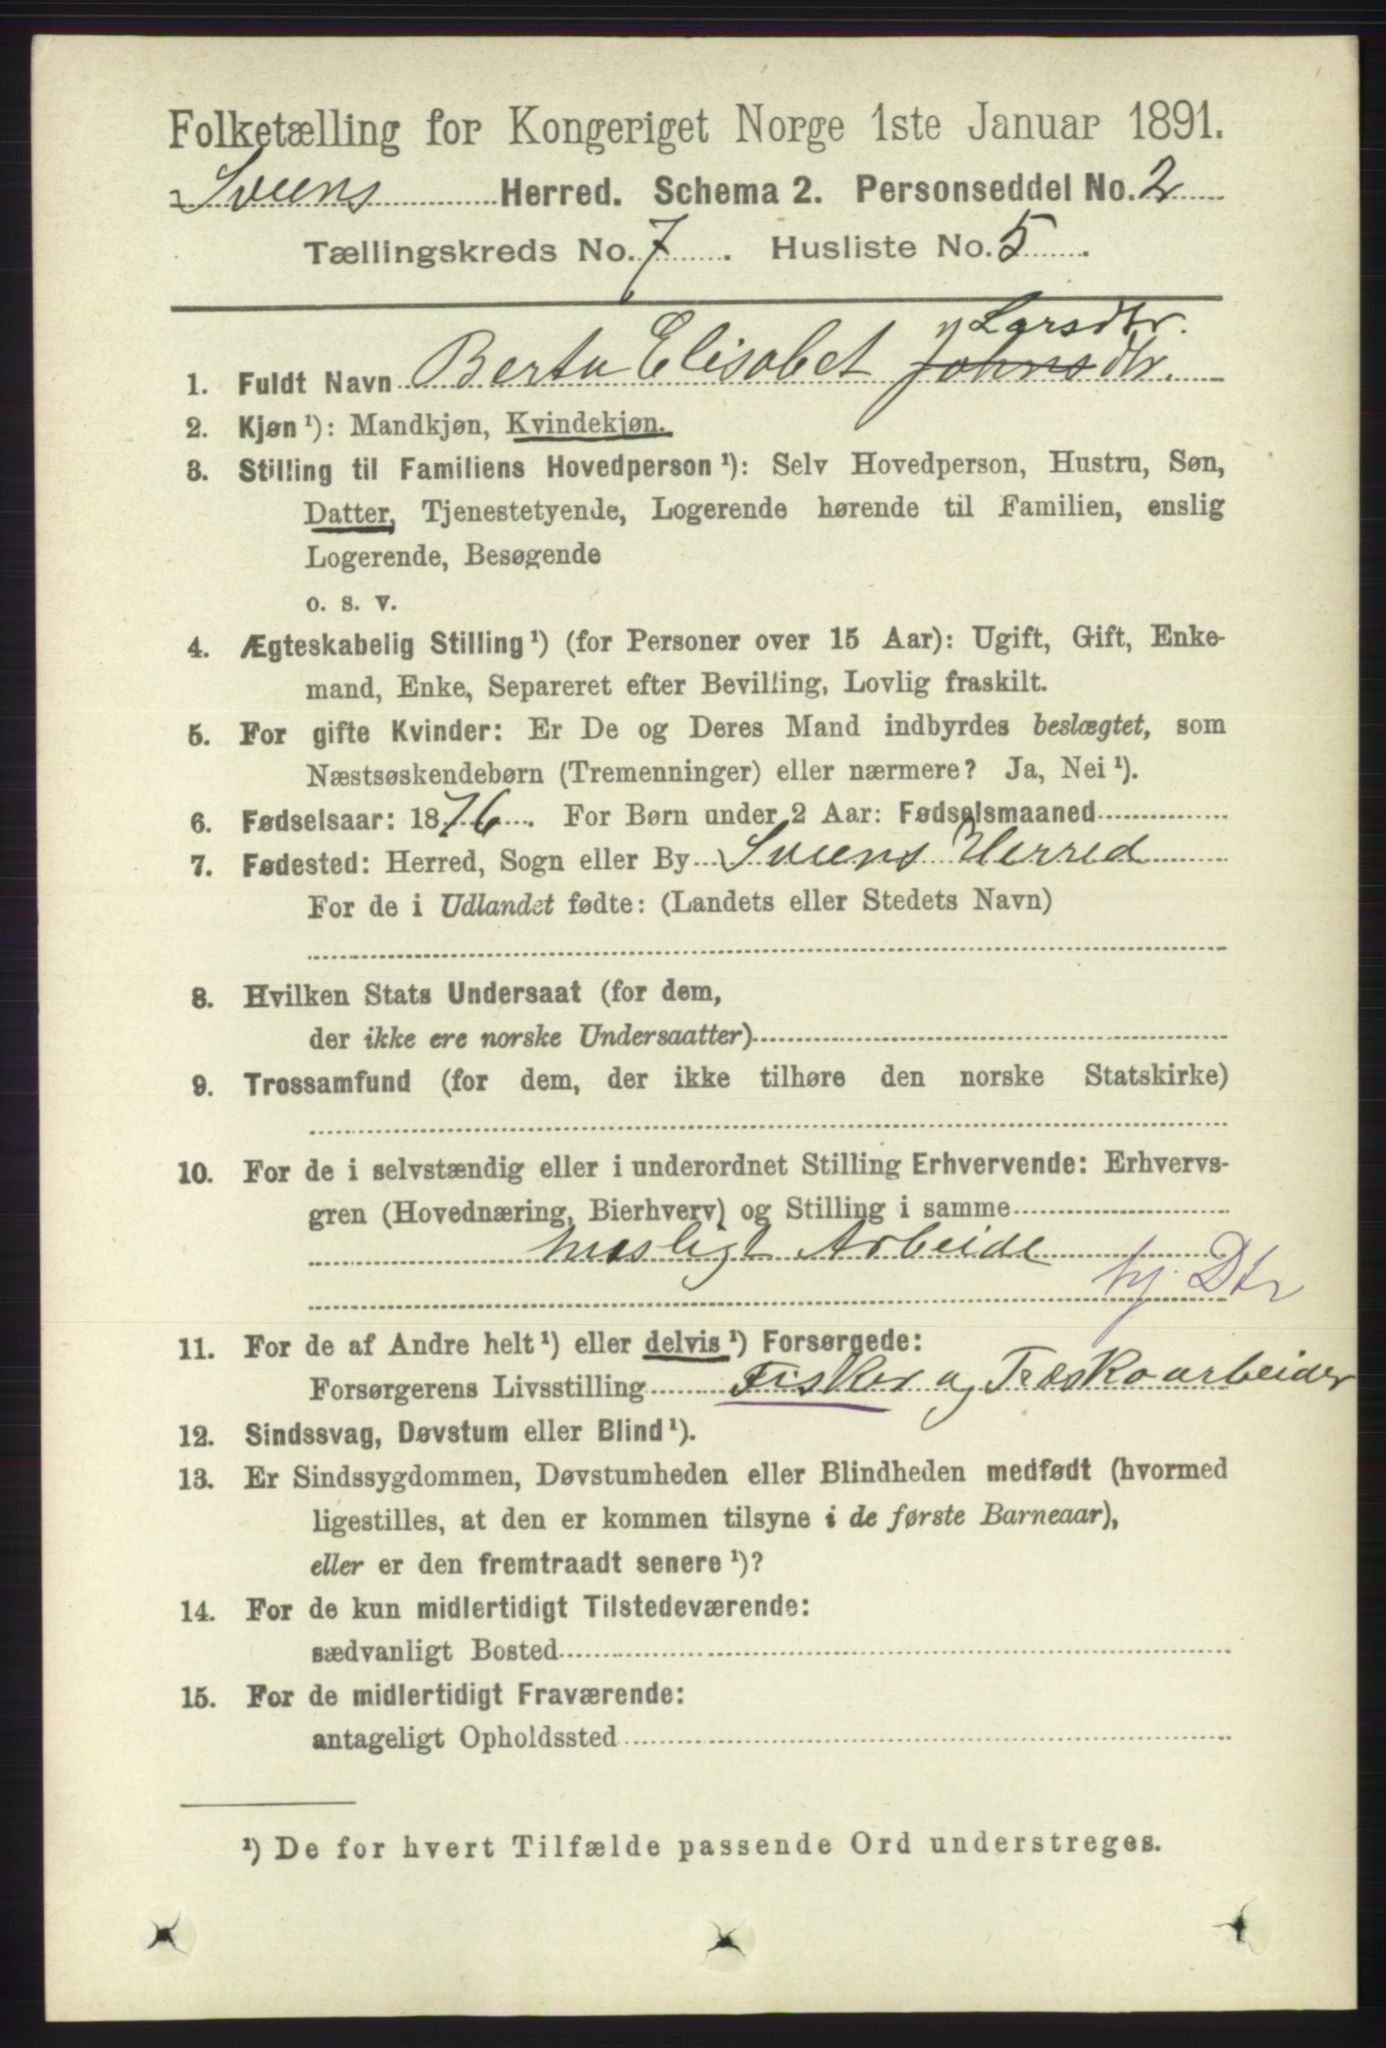 Folketælling for Kongeriget Norge 1ste Januar 1891.
Sveens Herred. Schema 2. Personseddel No. 2
Tællingskreds No. 7. Husliste No. 5.
Larsdtr.
1. Fuldt Navn Berta Elisabet Johnsdtr.
2. Kjøn ¹): Mandkjøn, Kvindekjøn.
3. Stilling til Familiens Hovedperson ¹): Selv Hovedperson, Hustru, Søn,
Datter, Tjenestetyende, Logerende hørende til Familien, enslig
Logerende, Besøgende
o. s. v.
4. Ægteskabelig Stilling ¹) (for Personer over 15 Aar): Ugift, Gift, Enke-
mand, Enke, Separeret efter Bevilling, Lovlig fraskilt.
5. For gifte Kvinder: Er De og Deres Mand indbyrdes beslægtet, som
Næstsøskendebørn (Tremenninger) eller nærmere? Ja, Nei ¹).
6. Fødselsaar: 1876. For Børn under 2 Aar: Fødselsmaaned
7. Fødested: Herred, Sogn eller By Sveens Herred
For de i Udlandet fødte: (Landets eller Stedets Navn)
8. Hvilken Stats Undersaat (for dem,
der ikke ere norske Undersaatter)
9. Trossamfund (for dem, der ikke tilhøre den norske Statskirke)
10. For de i selvstændig eller i underordnet Stilling Erhvervende: Erhvervs-
gren (Hovednæring, Bierhverv) og Stilling i samme
husligt Arbeide
hj. Dtr
11. For de af Andre helt ¹) eller delvis ¹) Forsørgede:
Forsørgerens Livsstilling Fisker og Træskoarbeider
12. Sindssvag, Døvstum eller Blind ¹).
13. Er Sindssygdommen, Døvstumheden eller Blindheden medfødt (hvormed
ligestilles, at den er kommen tilsyne i de første Barneaar),
eller er den fremtraadt senere ¹)?
14. For de kun midlertidigt Tilstedeværende:
sædvanligt Bosted
15. For de midlertidigt Fraværende:
antageligt Opholdssted
¹) De for hvert Tilfælde passende Ord understreges.